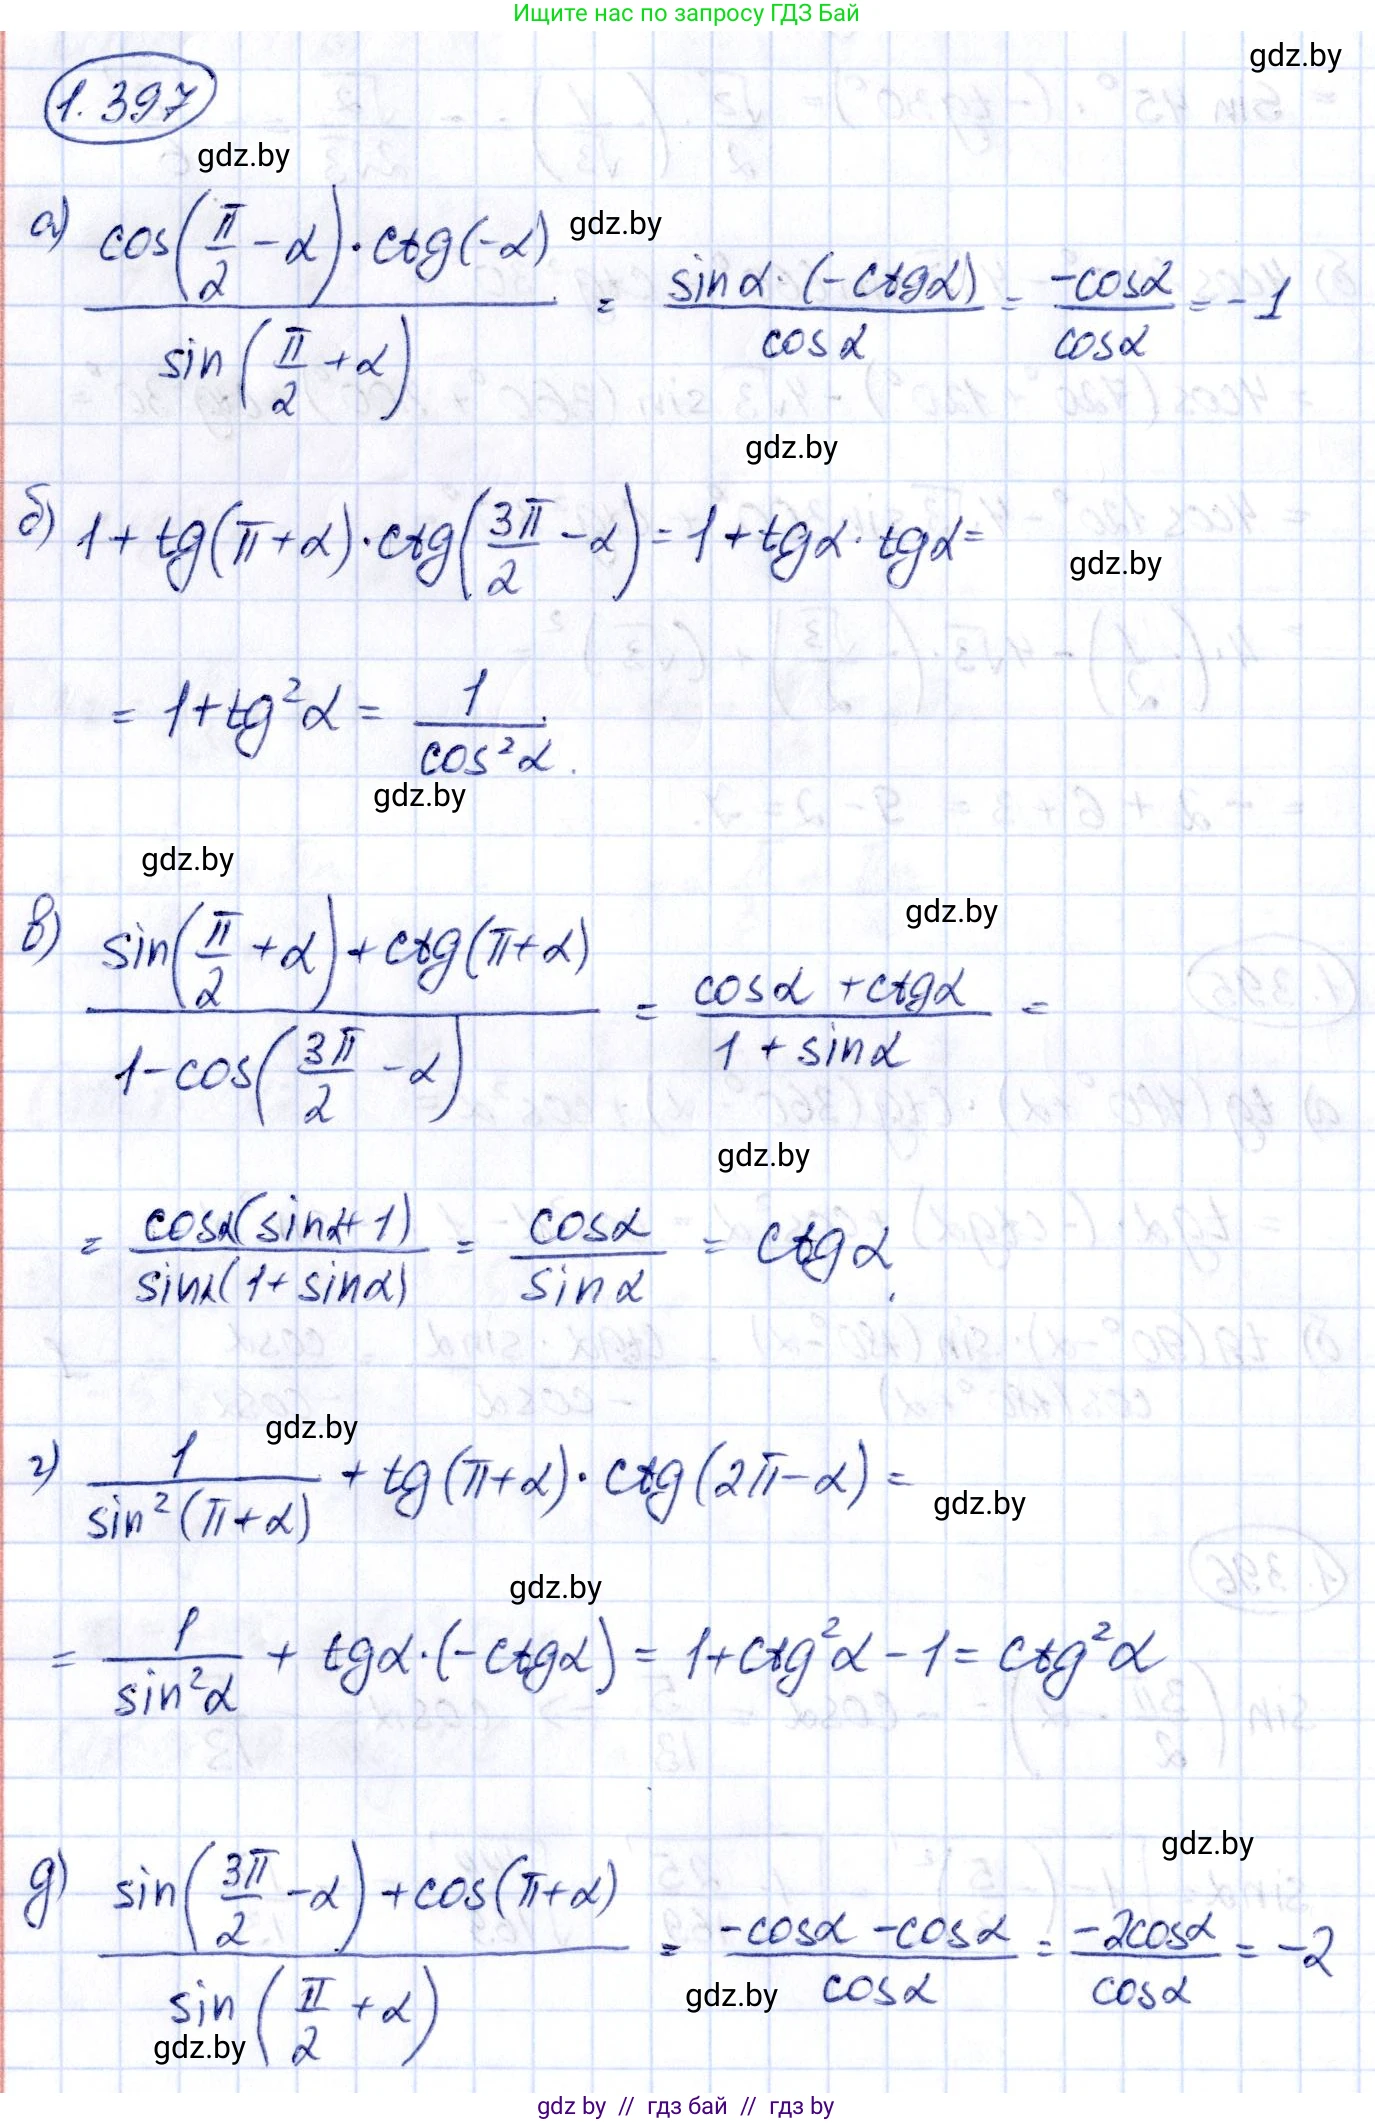 Ищите нас по запросу ГДЗ Бай
gdz.by
1.397
gdz.by
а) cos(π/2 − α) · ctg(−α) / sin(π/2 + α) = sinα · (−ctgα) / cosα = −cosα / cosα = −1
gdz.by
gdz.by
б) 1 + tg(π+α) · ctg(3π/2 − α) = 1 + tgα · tgα =
gdz.by
= 1 + tg²α = 1 / cos²α.
gdz.by
gdz.by
gdz.by
в) sin(π/2 + α) + ctg(π+α) / 1 − cos(3π/2 − α) = cosα + ctgα / 1 + sinα =
gdz.by
= cosα(sinα+1) / sinα(1+sinα) = cosα / sinα = ctgα.
gdz.by
г) 1 / sin²(π+α) + tg(π+α) · ctg(2π−α) =
gdz.by
gdz.by
= 1 / sin²α + tgα · (−ctgα) = 1 + ctg²α − 1 = ctg²α
gdz.by
д) sin(3π/2 − α) + cos(π+α) / sin(π/2 + α) = −cosα − cosα / cosα = −2cosα / cosα = −2
gdz.by
gdz.by
gdz.by // гдз бай // гдз by